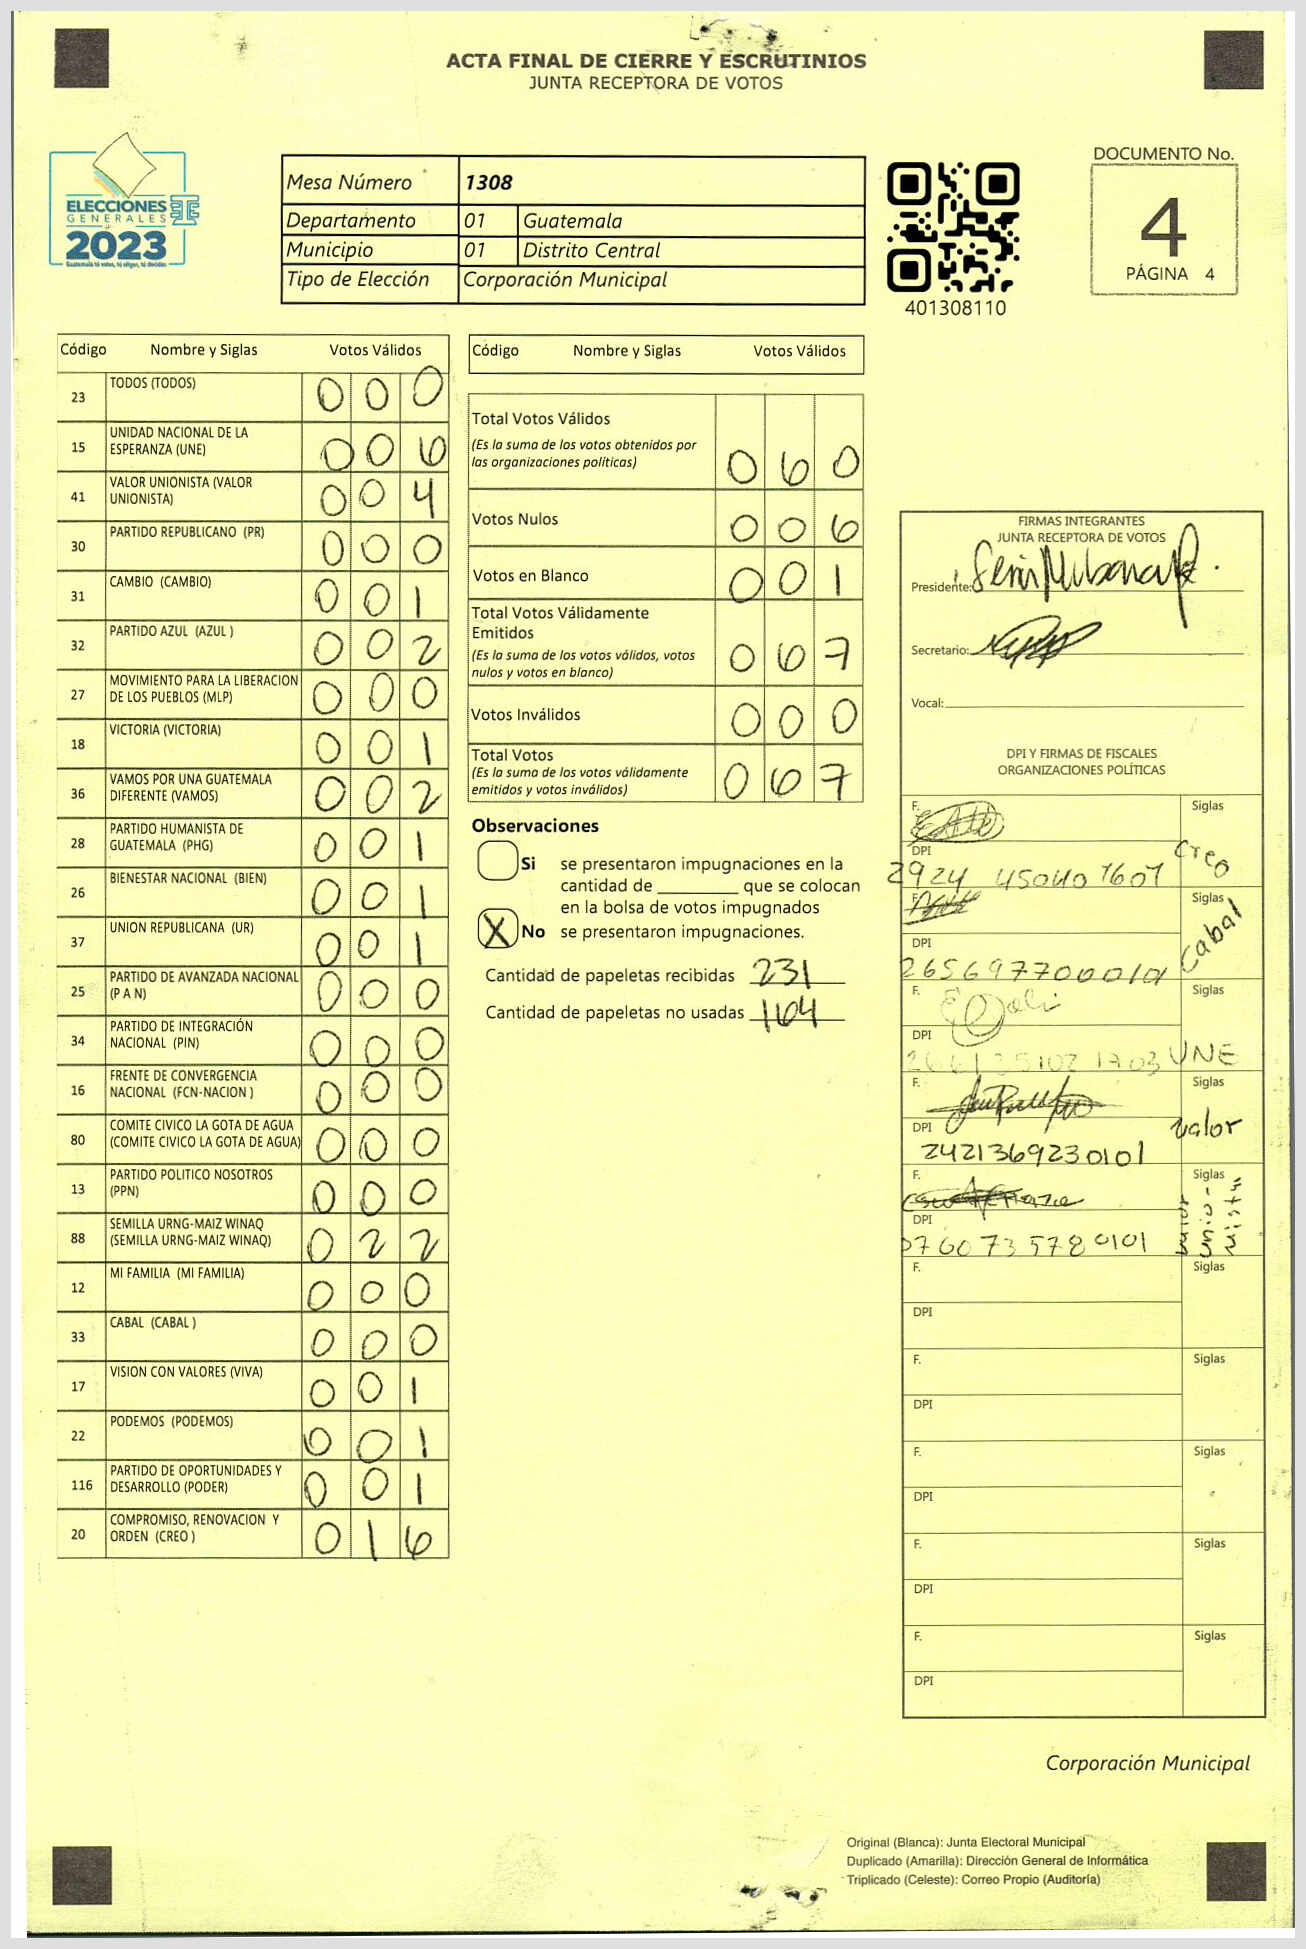 ACTA FINAL DE CIERRE Y ESCRUTINIOS
JUNTA RECEPTORA DE VOTOS
ELECCIONES
GENERALES
2023
Guatemala tú votas, tú eliges, tú decides
Mesa Número 1308
Departamento 01 Guatemala
Municipio 01 Distrito Central
Tipo de Elección Corporación Municipal
401308110
DOCUMENTO No.
4
PÁGINA 4
Código Nombre y Siglas Votos Válidos
23 TODOS (TODOS) 0 0 0
15 UNIDAD NACIONAL DE LA
ESPERANZA (UNE) 0 0 6
41 VALOR UNIONISTA (VALOR
UNIONISTA) 0 0 4
30 PARTIDO REPUBLICANO (PR) 0 0 0
31 CAMBIO (CAMBIO) 0 0 1
32 PARTIDO AZUL (AZUL ) 0 0 2
27 MOVIMIENTO PARA LA LIBERACION
DE LOS PUEBLOS (MLP) 0 0 0
18 VICTORIA (VICTORIA) 0 0 1
36 VAMOS POR UNA GUATEMALA
DIFERENTE (VAMOS) 0 0 2
28 PARTIDO HUMANISTA DE
GUATEMALA (PHG) 0 0 1
26 BIENESTAR NACIONAL (BIEN) 0 0 1
37 UNION REPUBLICANA (UR) 0 0 1
25 PARTIDO DE AVANZADA NACIONAL
(P A N) 0 0 0
34 PARTIDO DE INTEGRACIÓN
NACIONAL (PIN) 0 0 0
16 FRENTE DE CONVERGENCIA
NACIONAL (FCN-NACION ) 0 0 0
80 COMITE CIVICO LA GOTA DE AGUA
(COMITE CIVICO LA GOTA DE AGUA) 0 0 0
13 PARTIDO POLITICO NOSOTROS
(PPN) 0 0 0
88 SEMILLA URNG-MAIZ WINAQ
(SEMILLA URNG-MAIZ WINAQ) 0 2 2
12 MI FAMILIA (MI FAMILIA) 0 0 0
33 CABAL (CABAL ) 0 0 0
17 VISION CON VALORES (VIVA) 0 0 1
22 PODEMOS (PODEMOS) 0 0 1
116 PARTIDO DE OPORTUNIDADES Y
DESARROLLO (PODER) 0 0 1
20 COMPROMISO, RENOVACION Y
ORDEN (CREO ) 0 1 6
Código Nombre y Siglas Votos Válidos
Total Votos Válidos
(Es la suma de los votos obtenidos por
las organizaciones políticas) 0 6 0
Votos Nulos 0 0 6
Votos en Blanco 0 0 1
Total Votos Válidamente
Emitidos
(Es la suma de los votos válidos, votos
nulos y votos en blanco) 0 6 7
Votos Inválidos 0 0 0
Total Votos
(Es la suma de los votos válidamente
emitidos y votos inválidos) 0 6 7
Observaciones
Si se presentaron impugnaciones en la
cantidad de ________ que se colocan
en la bolsa de votos impugnados
X No se presentaron impugnaciones.
Cantidad de papeletas recibidas 231
Cantidad de papeletas no usadas 164
FIRMAS INTEGRANTES
JUNTA RECEPTORA DE VOTOS
Presidente:
Secretario:
Vocal:
DPI Y FIRMAS DE FISCALES
ORGANIZACIONES POLÍTICAS
F. Siglas
DPI Creo
2924 45040 1601
F. Siglas
DPI Cabal
2656977000101
F. Siglas
DPI
UNE
F. Siglas
DPI Valor
2421369230101
F. Siglas
DPI valor unio-nista
0760735780101
F. Siglas
DPI
F. Siglas
DPI
F. Siglas
DPI
F. Siglas
DPI
F. Siglas
DPI
Corporación Municipal
Original (Blanca): Junta Electoral Municipal
Duplicado (Amarilla): Dirección General de Informática
Triplicado (Celeste): Correo Propio (Auditoría)